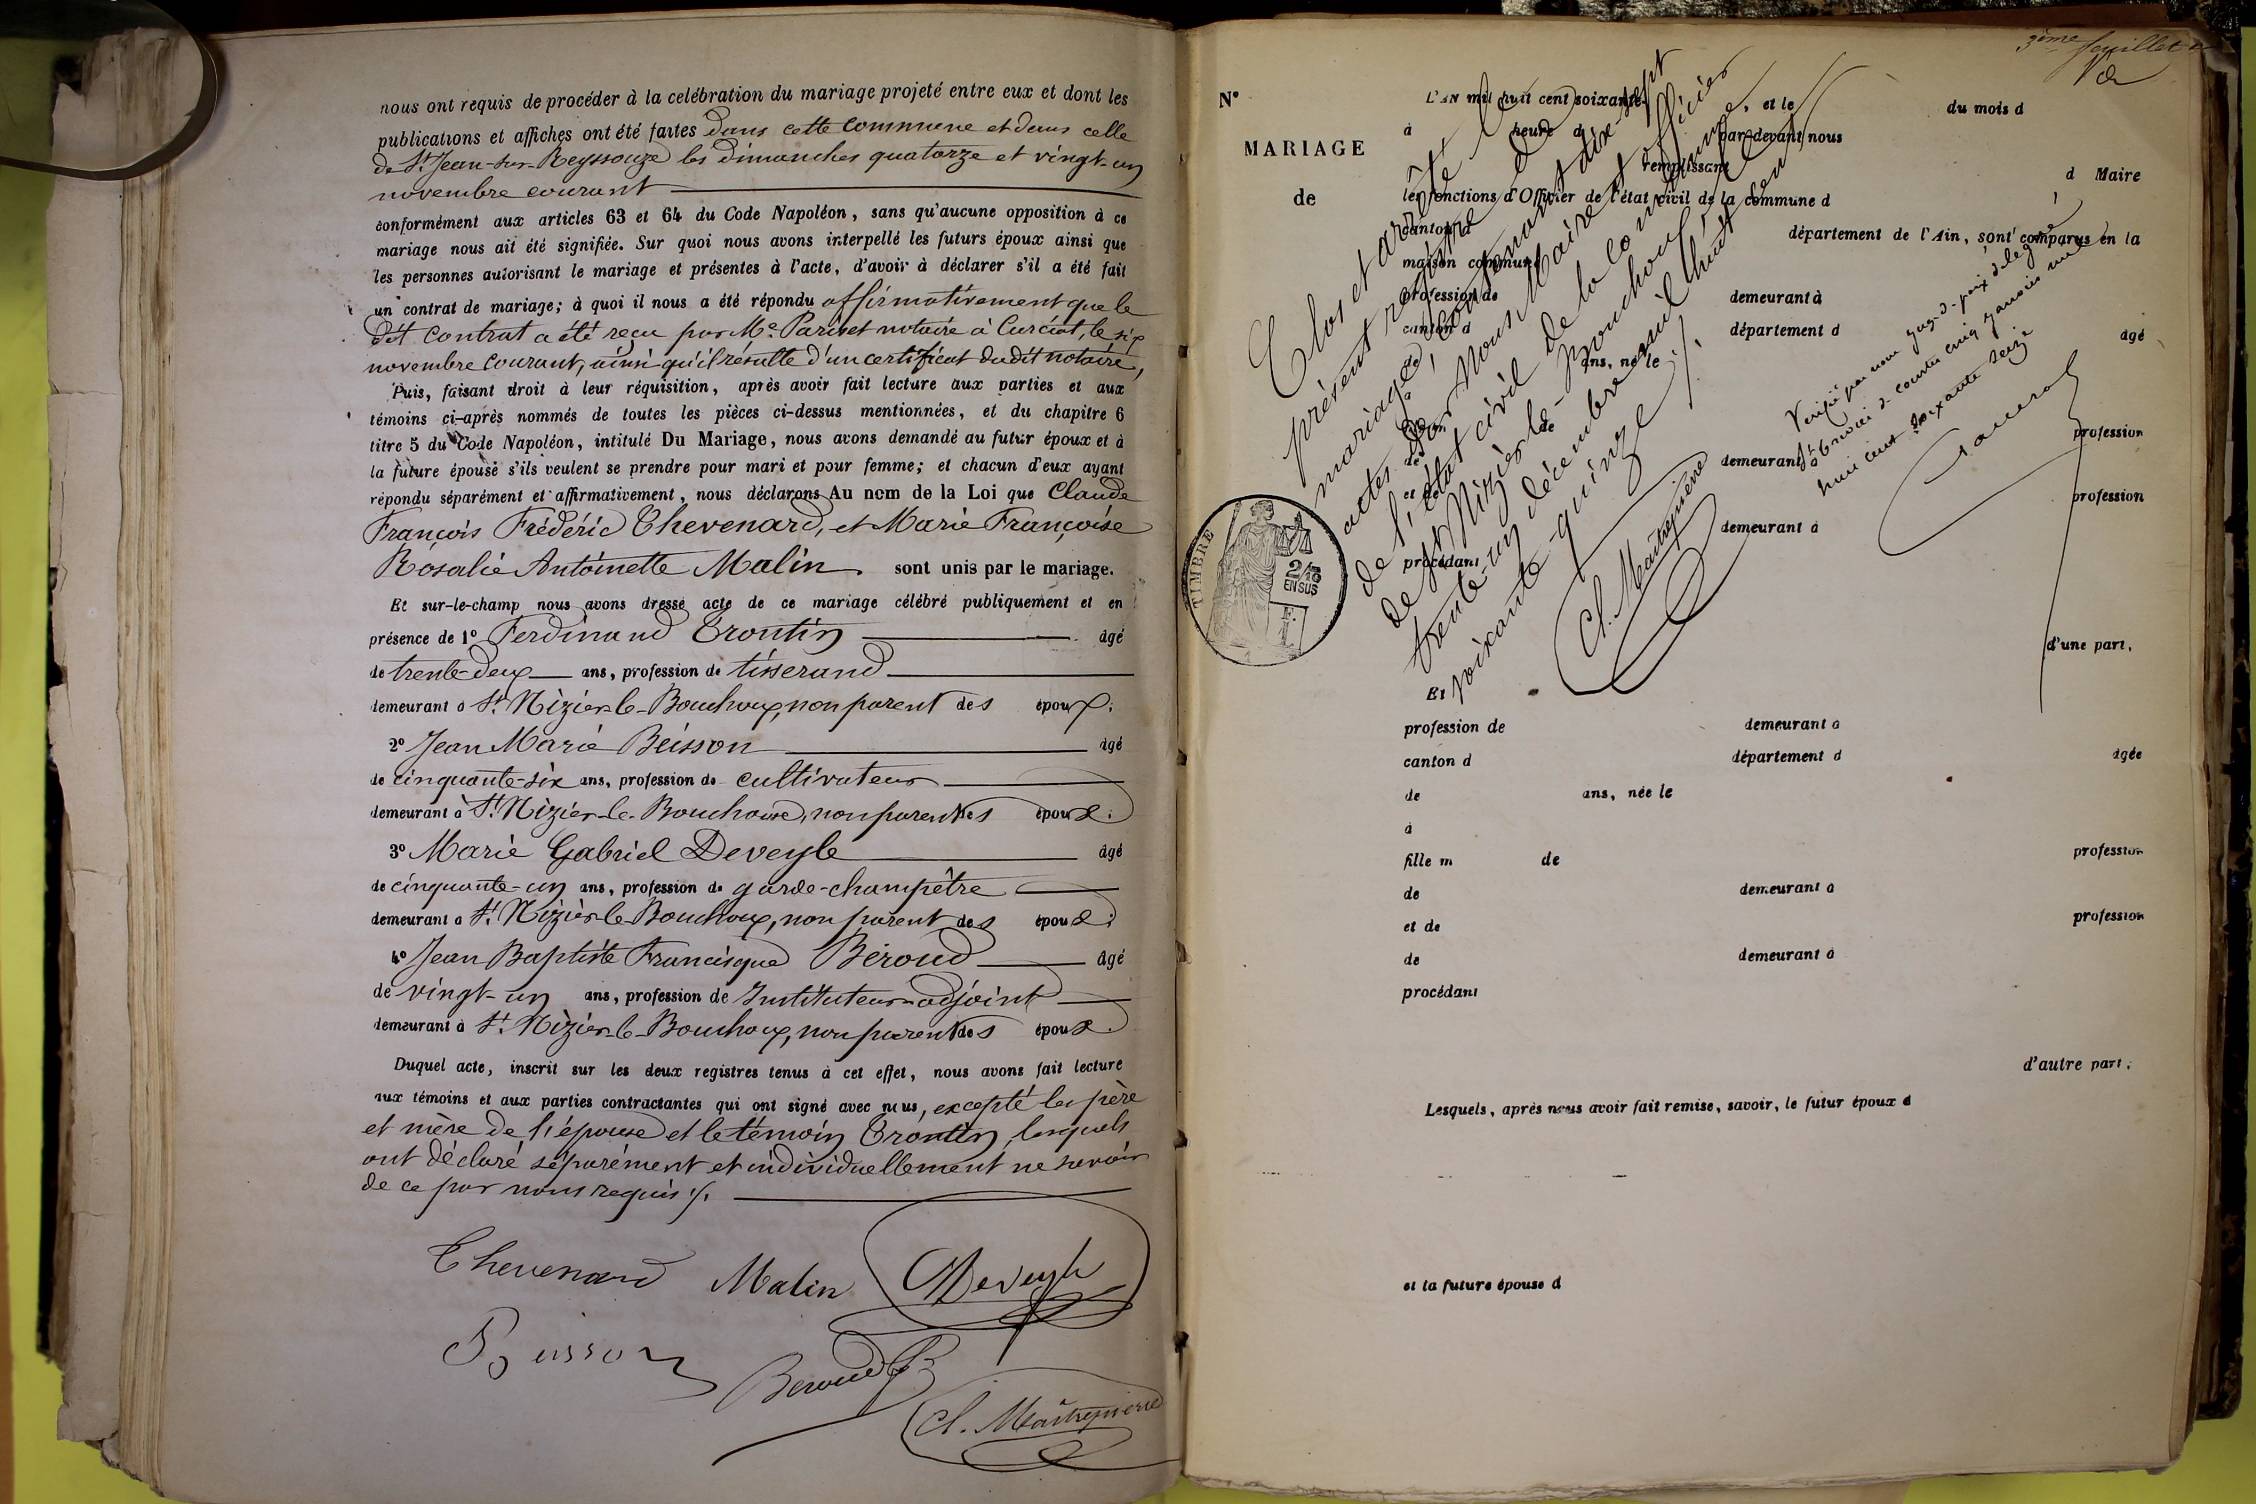 nous ont requis de procéder à la celébration du mariage projeté entre eux et dont les
publications et affiches ont été faites dans cette commune et dans celle
de St Jean-sur-Reyssouze les dimanches quatorze et vingt-un
novembre courant
conformément aux articles 63 et 64 du Code Napoléon, sans qu'aucune opposition à ce
mariage nous ait été signifiée. Sur quoi nous avons interpellé les futurs époux ainsi que
les personnes autorisant le mariage et présentes à l'acte, d'avoir à déclarer s'il a été fait
un contrat de mariage; à quoi il nous a été répondu affirmativement que le
dit contrat a été reçu par Me Pariset notaire à Curciat, le six
novembre courant, ainsi qu'il résulte d'un certificat dudit notaire,
Puis, faisant droit à leur réquisition, après avoir fait lecture aux parties et aux
témoins ci-après nommés de toutes les pièces ci-dessus mentionnées, et du chapitre 6
titre 5 du Code Napoléon, intitulé Du Mariage, nous avons demandé au futur époux et à
la future épouse s'ils veulent se prendre pour mari et pour femme; et chacun d'eux ayant
répondu séparément et affirmativement, nous déclarons Au nom de la Loi que Claude
François Frédéric Thevenard, et Marie Françoise
Rosalie Antoinette Malin. sont unis par le mariage.
Et sur-le-champ nous avons dressé acte de ce mariage célébré publiquement et en
présence de 1º Ferdinand Trontin âgé
de trente-deux ans, profession de tisserand
demeurant à St Nizier-le-Bouchoux, non parent des époux;
2º Jean Marie Beisson âgé
de cinquante-six ans, profession de cultivateur
demeurant à St Nizier-le-Bouchoux, non parent des époux;
3º Marie Gabriel Deveyle âgé
de cinquante-un ans, profession de garde-champêtre
demeurant à St Nizier-le-Bouchoux, non parent des époux;
4º Jean Baptiste Francisque Béroud âgé
de vingt-un ans, profession de Instituteur-adjoint
demeurant à St Nizier-le-Bouchoux, non parent des époux.
Duquel acte, inscrit sur les deux registres tenus à cet effet, nous avons fait lecture
aux témoins et aux parties contractantes qui ont signé avec nous, excepté les père
et mère de l'épouse et le témoin Trontin, lesquels
ont déclaré séparément et individuellement ne savoir
de ce par nous requis ./.
Thevenard Malin Deveyle
Beisson Beroud
Cl. Maîtrepierre
3ème feuillet
Nº
MARIAGE
de
L'AN mil huit cent soixante- , et le du mois d
à heure d par-devant nous
remplissant
d Maire
les fonctions d'Officier de l'état civil de la commune d
canton d département de l'Ain, sont comparus en la
maison commune
profession de demeurant à
canton d département d âgé
ans, né le
de profession
de demeurant à
et de profession
demeurant à
procédant
d'une part,
Clos et arrêté le
présent registre de
mariages, contenant dix-sept
actes par Nous Maire et officier
de l'état civil de la commune
de St Nizier-le-Bouchoux, le
trente-un décembre mil huit cent
soixante-quinze ./.
Cl. Maîtrepierre
Vérifié par nous juge de paix délégué
huit cent soixante seize
TIMBRE
2/10
EN SUS
Et
profession de demeurant à
canton d département d âgée
de ans, née le
à
fille m de profession
de demeurant à
et de profession
de demeurant à
procédant
d'autre part;
Lesquels, après nous avoir fait remise, savoir, le futur époux d
et la future épouse d